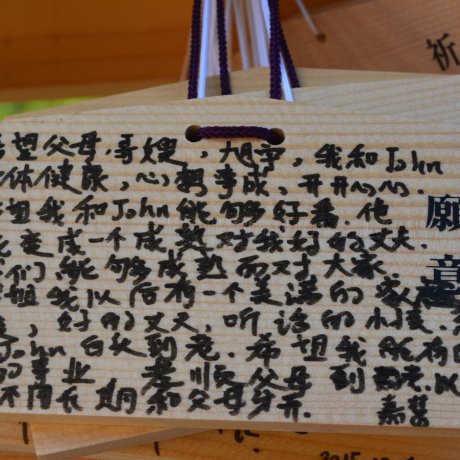 希望父母.哥嫂，旭宇，我和John
身体健康，心想事成，开开心心.
希望我和John能够好喬.他
变成一个成熟对我好的丈夫.
们能够成熟面对大家.
姐我以后有一个美满的家
，好的丈夫，听话的小孩.
John白头到老.希望我能有
的事业 孝顺父母到老.
不用长期和父母分开.
嘉
愿意
祈
2015.12